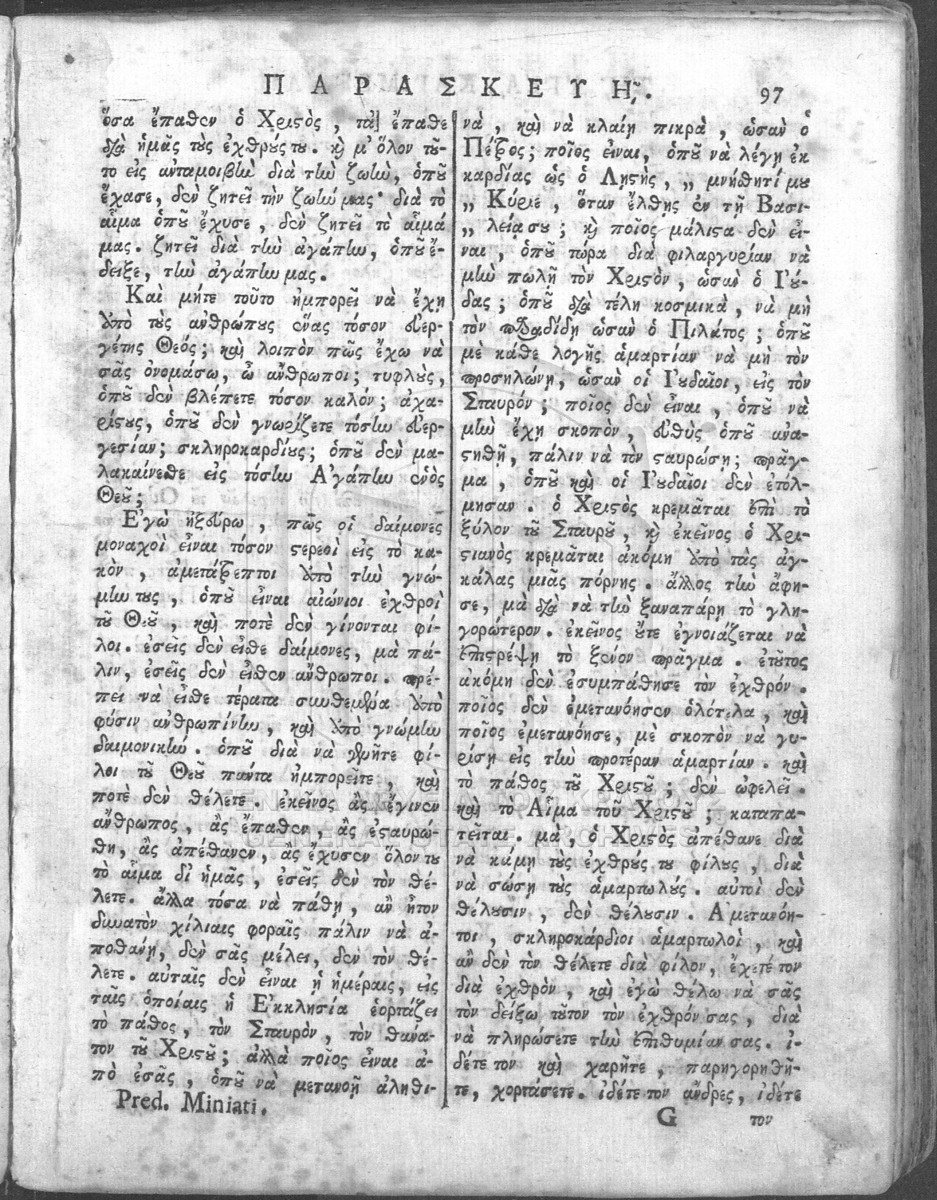 ΠΑΡΑΣΚΕΥΗ͂.
97
ὅσα ἔπαθεν ὁ Χριστὸς, τὰ ἔπαθε
διὰ ἡμᾶς τοὺς ἐχθρούς του. καὶ μ' ὅλον τοῦ-
το εἰς ἀνταμοιβὴν διὰ τὴν ζωὴν, ὁποῦ
ἔχασε, δὲν ζητεῖ τὴν ζωήν μας· διὰ τὸ
αἷμα ὁποῦ ἔχυσε, δὲν ζητεῖ τὸ αἷμά
μας. ζητεῖ διὰ τὴν ἀγάπην, ὁποῦ ἔ-
δειξε, τὴν ἀγάπην μας.
Καὶ μήτε τοῦτο ἠμπορεῖ νὰ ἔχῃ
ἀπὸ τοὺς ἀνθρώπους ἕνας τόσον εὐερ-
γέτης Θεός; καὶ λοιπὸν πῶς ἔχω νὰ
σᾶς ὀνομάσω, ὦ ἄνθρωποι; τυφλοὺς,
ὁποῦ δὲν βλέπετε τόσον καλον; ἀχα-
ρίστους, ὁποῦ δὲν γνωρίζετε τόσην εὐερ-
γεσίαν; σκληροκαρδίους; ὁποῦ δὲν μα-
λακαίνεσθε εἰς τόσην Ἀγάπην ἑνὸς
Θεοῦ;
Ἐγὼ ἠξεύρω, πῶς οἱ δαίμονες
μοναχοὶ εἶναι τόσον στερεοὶ εἰς τὸ κα-
κὸν, ἀμετάτρεπτοι ἀπὸ τὴν γνώ-
μην τους, ὁποῦ εἶναι αἰώνιοι ἐχθροὶ
τοῦ Θεοῦ, καὶ ποτὲ δὲν γίνονται φί-
λοι. ἐσεῖς δὲν εἶσθε δαίμονες, μὰ πά-
λιν, ἐσεῖς δὲν εἶσθεν ἄνθρωποι. πρέ-
πει νὰ εἶσθε τέρατα συνθεμένα ἀπὸ
φύσιν ἀνθρωπίνην, καὶ ἀπὸ γνώμην
δαιμονικὴν. ὁποῦ διὰ νὰ γενῆτε φί-
λοι τοῦ Θεοῦ πάντα ἠμπορεῖτε, καὶ
ποτὲ δὲν θέλετε. ἐκεῖνος ἂς ἔγινεν
ἄνθρωπος, ἂς ἔπαθεν, ἂς ἐσταυρώ-
θη, ἂς ἀπέθανεν, ἂς ἔχυσεν ὅλον του
τὸ αἷμα δι' ἡμᾶς, ἐσεῖς δὲν τὸν θέ-
λετε. ἀλλα τόσα νὰ πάθῃ, ἂν ἦτον
δυνατὸν χίλιαις φοραῖς πάλιν νὰ ἀ-
ποθανῇ, δὲν σᾶς μέλει, δὲν τὸν θέ-
λετε. αὐταῖς δὲν εἶναι ᾑ ἡμέραις, εἰς
ταῖς ὁποίαις ἡ Ἐκκλησία ἑορτάζει
τὸ πάθος, τὸν Σταυρὸν, τὸν θάνα-
τον τοῦ Χριστοῦ; ἀλλὰ ποῖος εἶναι ἀ-
πὸ ἐσᾶς, ὁποῦ νὰ μετανοῇ ἀληθι-
Pred. Miniati.
νὰ, καὶ νὰ κλαίῃ πικρὰ, ὡσὰν ὁ
Πέτρος; ποῖος εἶναι, ὁποῦ νὰ λέγῃ ἐκ
καρδίας ὡς ὁ Λῃστὴς, „ μνήθητί μου
„ Κύριε, ὅταν ἔλθῃς ἐν τῇ Βασι-
„ λείᾳ σου; καὶ ποῖος μάλιστα δὲν εἶ-
ναι, ὁποῦ τώρα διὰ φιλαργυρίαν νὰ
μὴν πωλῇ τὸν Χριστὸν, ὡσὰν ὁ Ἰού-
δας; ὁποῦ διὰ τέλη κοσμικὰ, νὰ μὴ
τὸν παραδίδῃ ὡσὰν ὁ Πιλάτος; ὁποῦ
μὲ κάθε λογῆς ἁμαρτίαν νὰ μὴ τὸν
προσηλώνῃ, ὡσὰν οἱ Ἰουδαῖοι, εἰς τὸν
Σταυρόν; ποῖος δὲν εἶναι, ὁποῦ νὰ
μὴν ἔχῃ σκοπὸν, εὐθὺς ὁποῦ ἀνα-
στηθῇ, πάλιν νὰ τὸν σταυρώσῃ; πρᾶγ-
μα, ὁποῦ καὶ οἱ Ἰουδαῖοι δὲν ἐτόλ-
μησαν. ὁ Χριστὸς κρεμᾶται ἐπὶ τὸ
ξύλον τοῦ Σταυροῦ, καὶ ἐκεῖνος ὁ Χρι-
στιανὸς κρεμᾶται ἀκόμη ἀπὸ τὰς ἀγ-
κάλας μιᾶς πόρνης. ἄλλος τὴν ἄφη-
σε, μὰ διὰ νὰ τὴν ξαναπάρῃ τὸ γλη-
γορώτερον. ἐκεῖνος οὔτε ἐγνοιάζεται νὰ
ἐπιστρέψῃ τὸ ξένον πρᾶγμα. ἐτοῦτος
ἀκόμη δὲν ἐσυμπάθησε τὸν ἐχθρόν.
ποῖος δὲν ἐμετανόησεν ὁλότελα, καὶ
ποῖος ἐμετανόησε, μὲ σκοπὸν νὰ γυ-
ρίσῃ εἰς τὴν προτέραν ἁμαρτίαν. καὶ
τὸ πάθος τοῦ Χριστοῦ; δὲν ὠφελεῖ.
καὶ τὸ Αἷμα τοῦ Χριστοῦ; καταπα-
τεῖται. μὰ, ὁ Χριστὸς ἀπέθανε διὰ
νὰ κάμῃ τοὺς ἐχθρούς του φίλους, διὰ
νὰ σώσῃ τοὺς ἁμαρτωλούς. αὐτοὶ δὲν
θέλουσιν, δὲν θέλουσιν. Ἀμετανόη-
τοι, σκληροκάρδιοι ἁμαρτωλοὶ, καὶ
ἂν δὲν τὸν θέλετε διὰ φίλον, ἔχετέ τον
διὰ ἐχθρὸν, καὶ ἐγὼ θέλω νὰ σᾶς
τὸν δείξω τοῦτον τὸν ἐχθρόν σας, διὰ
νὰ πληρώσετε τὴν ἐπιθυμίαν σας. ἰ-
δέτε τον καὶ χαρῆτε, παρηγορηθῆ-
τε, χορτάσετε. ἰδέτε τον ἄνδρες, ἰδέτε
G
τον